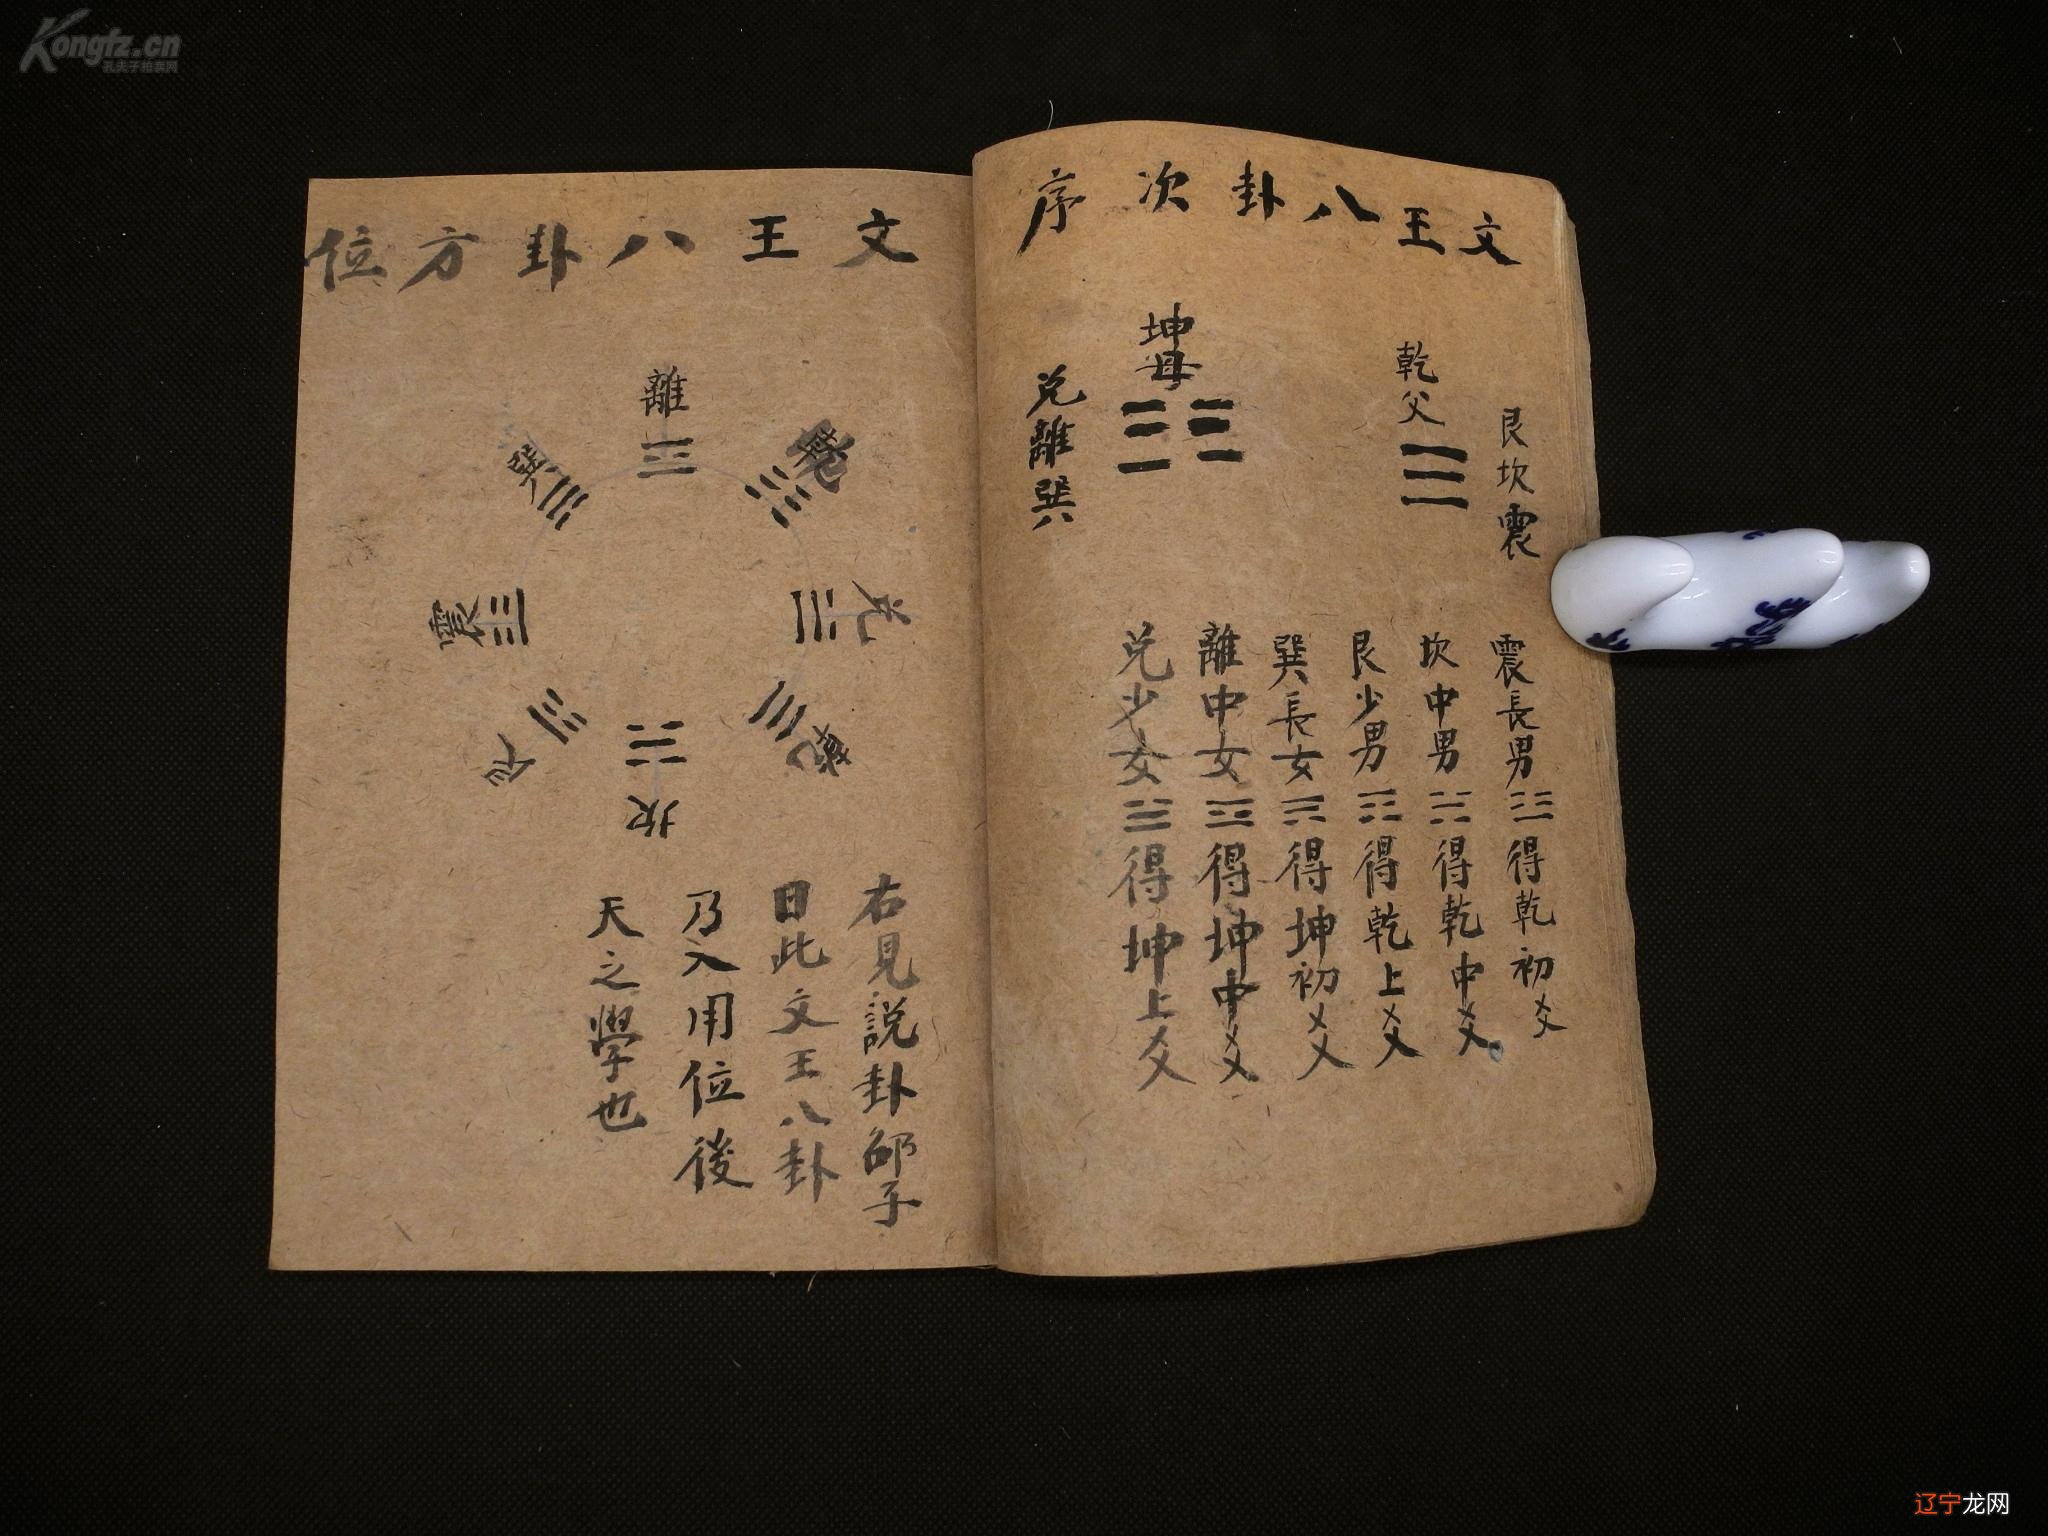 Kongfz.cn
孔夫子拍卖网
文王八卦次序
艮坎震
乾父
坤母
兌離巽
震長男☳得乾初爻
坎中男☵得乾中爻
艮少男☶得乾上爻
巽長女☴得坤初爻
離中女☲得坤中爻
兌少女☱得坤上爻
文王八卦方位
離
兌
乾
坎
震
巽
右見說卦邵子
曰此文王八卦
乃入用位後
天之學也
辽宁龙网